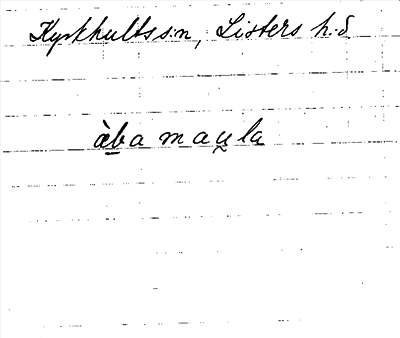 Kyrkhults s:n, Listers h:d
æ̀ba mau̯la